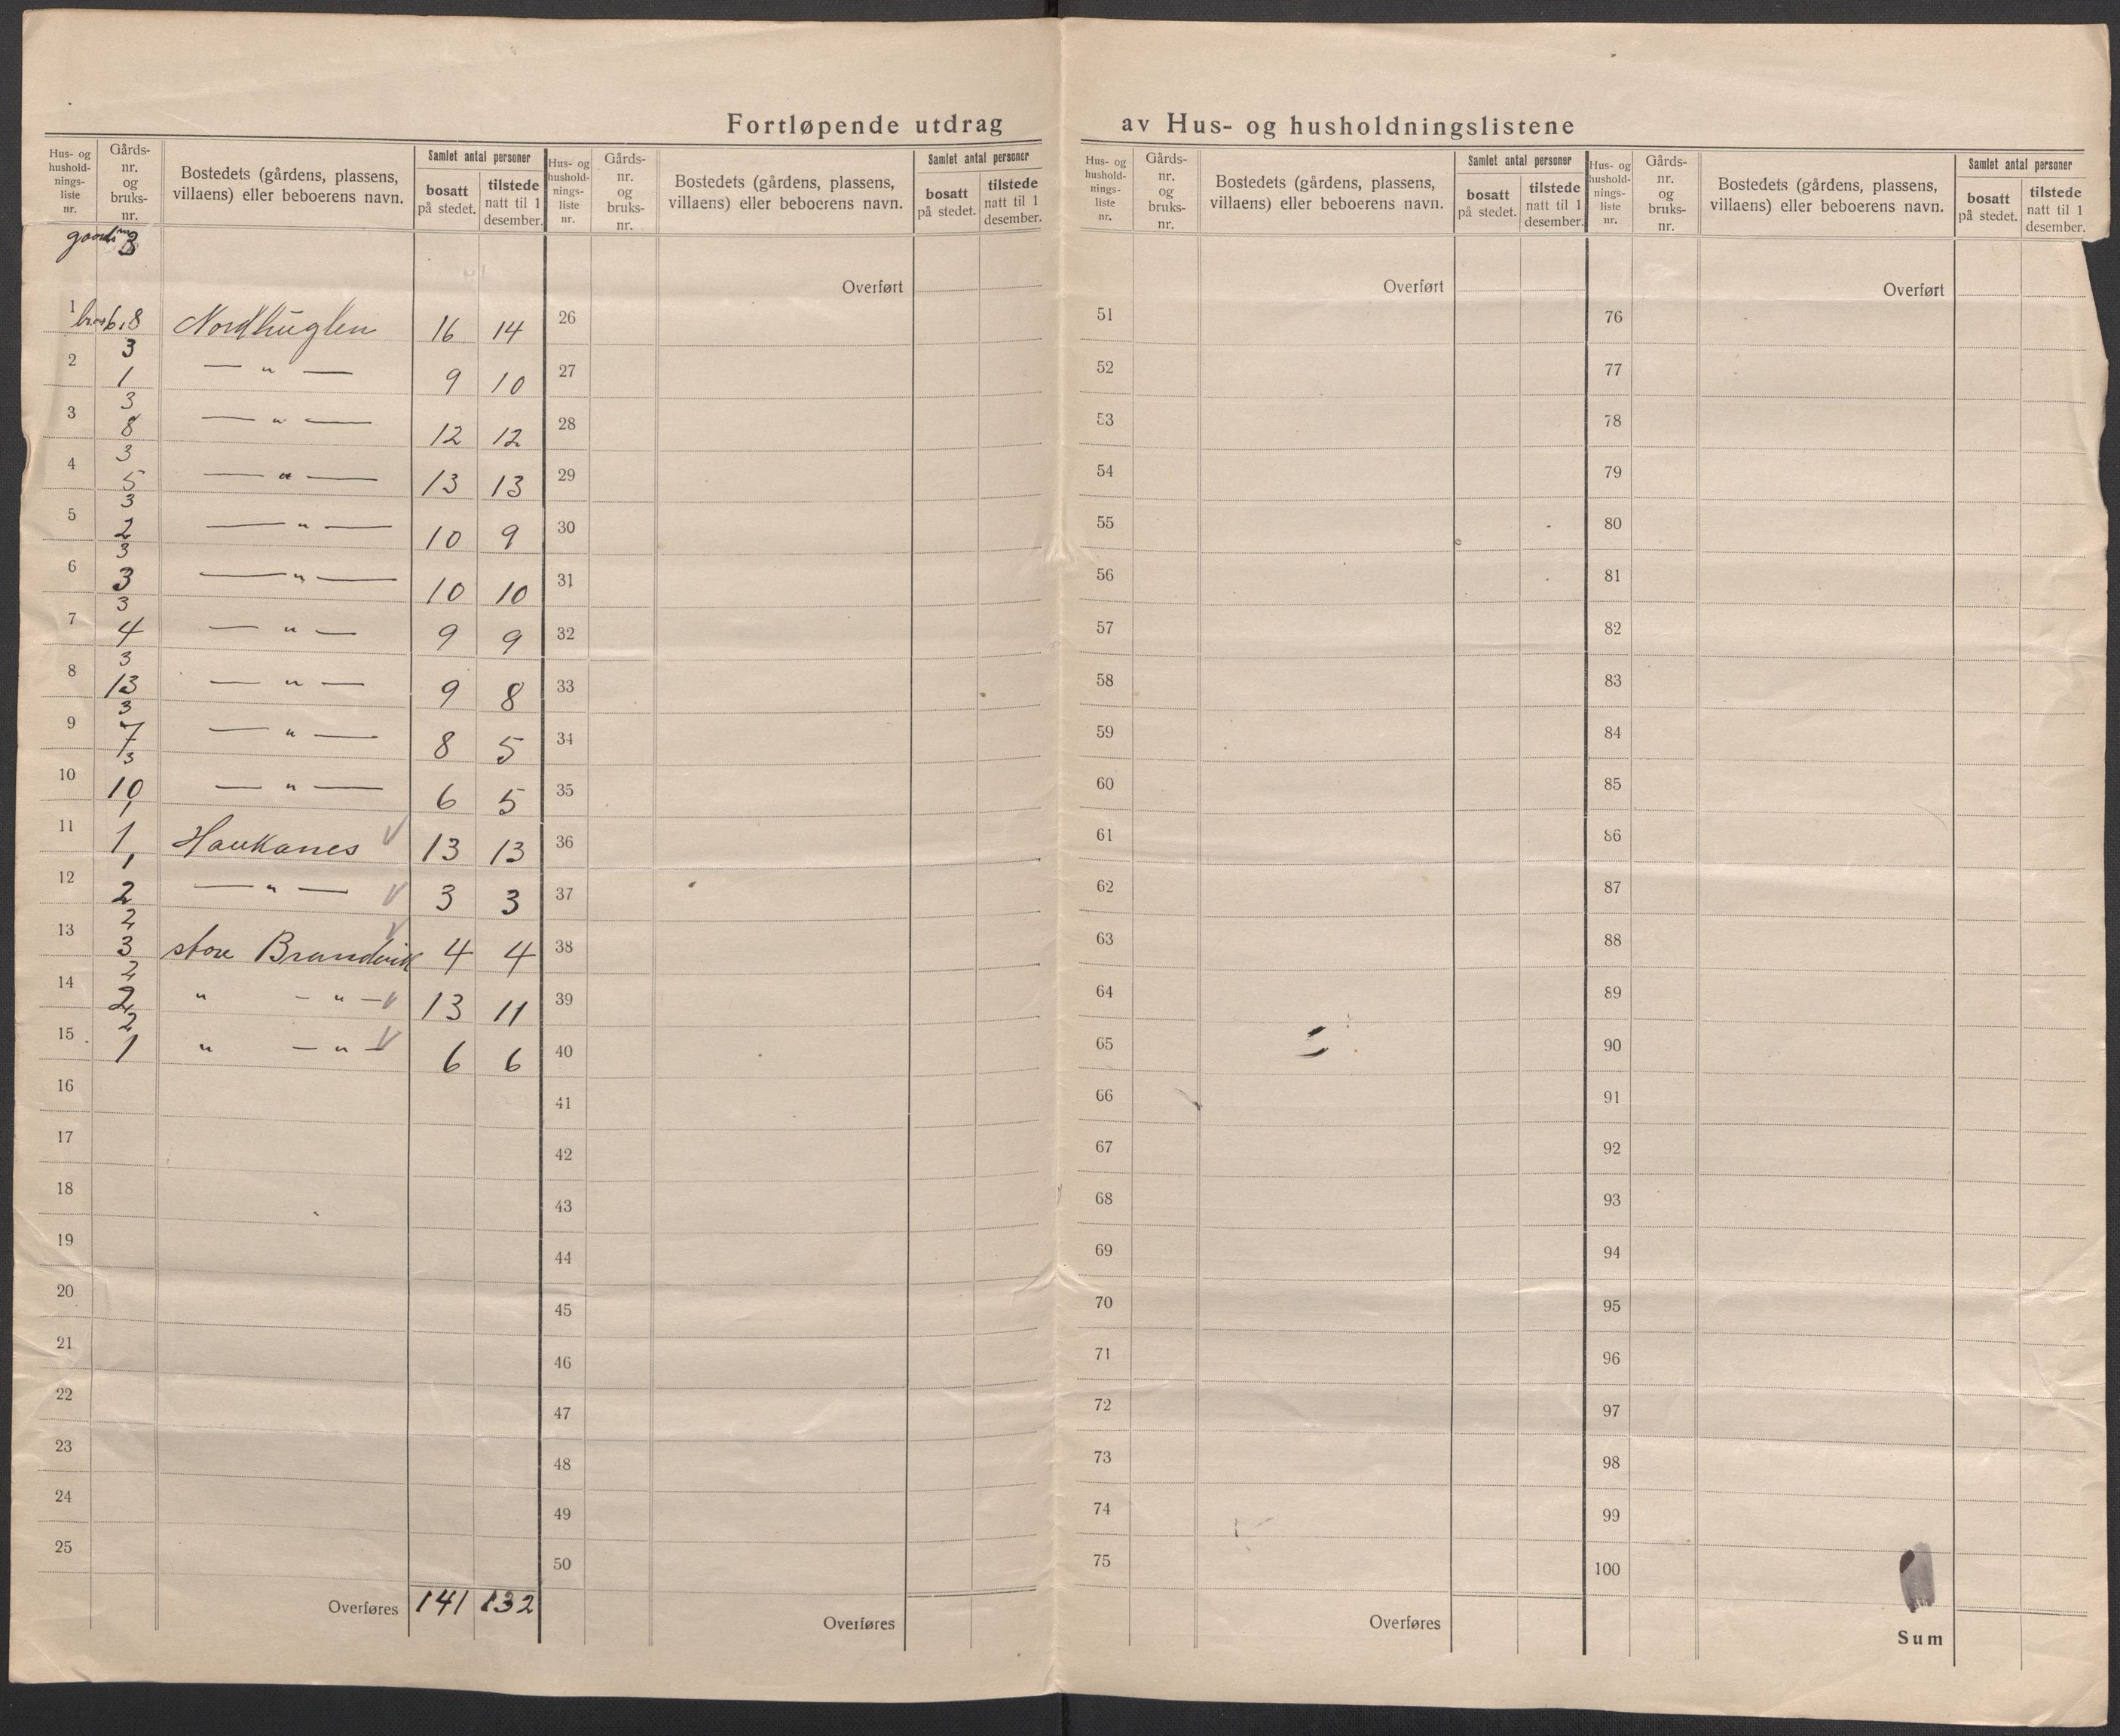 Fortløpende utdrag av Hus- og husholdningslistene
Hus- og hushold- nings- liste nr. | Gårds- nr. og bruks- nr. | Bostedets (gårdens, plassens, villaens) eller beboerens navn. | Samlet antal personer | bosatt på stedet. | tilstede natt til 1 desember.
3
1 | 8 | Nordhuglen | 16 | 14
2 | 3 1 | — " — | 9 | 10
3 | 3 8 | — " — | 12 | 12
4 | 3 5 | — " — | 13 | 13
5 | 3 2 | — " — | 10 | 9
6 | 3 3 | — " — | 10 | 10
7 | 3 4 | — " — | 9 | 9
8 | 3 13 | — " — | 9 | 8
9 | 3 7 | — " — | 8 | 5
10 | 3 10 | — " — | 6 | 5
11 | 1 1 | Haukanes | 13 | 13
12 | 1 2 | — " — | 3 | 3
13 | 2 3 | store Brandvik | 4 | 4
14 | 2 2 | " — " — | 13 | 11
15 | 2 1 | " — " — | 6 | 6
16
17
18
19
20
21
22
23
24
25
Overføres 141 132
Hus- og hushold- nings- liste nr. | Gårds- nr. og bruks- nr. | Bostedets (gårdens, plassens, villaens) eller beboerens navn. | Samlet antal personer | bosatt på stedet. | tilstede natt til 1 desember.
Overført
26
27
28
29
30
31
32
33
34
35
36
37
38
39
40
41
42
43
44
45
46
47
48
49
50
Overføres
Hus- og hushold- nings- liste nr. | Gårds- nr. og bruks- nr. | Bostedets (gårdens, plassens, villaens) eller beboerens navn. | Samlet antal personer | bosatt på stedet. | tilstede natt til 1 desember.
Overført
51
52
53
54
55
56
57
58
59
60
61
62
63
64
65
66
67
68
69
70
71
72
73
74
75
Overføres
Hus- og hushold- nings- liste nr. | Gårds- nr. og bruks- nr. | Bostedets (gårdens, plassens, villaens) eller beboerens navn. | Samlet antal personer | bosatt på stedet. | tilstede natt til 1 desember.
Overført
76
77
78
79
80
81
82
83
84
85
86
87
88
89
90
91
92
93
94
95
96
97
98
99
100
Sum